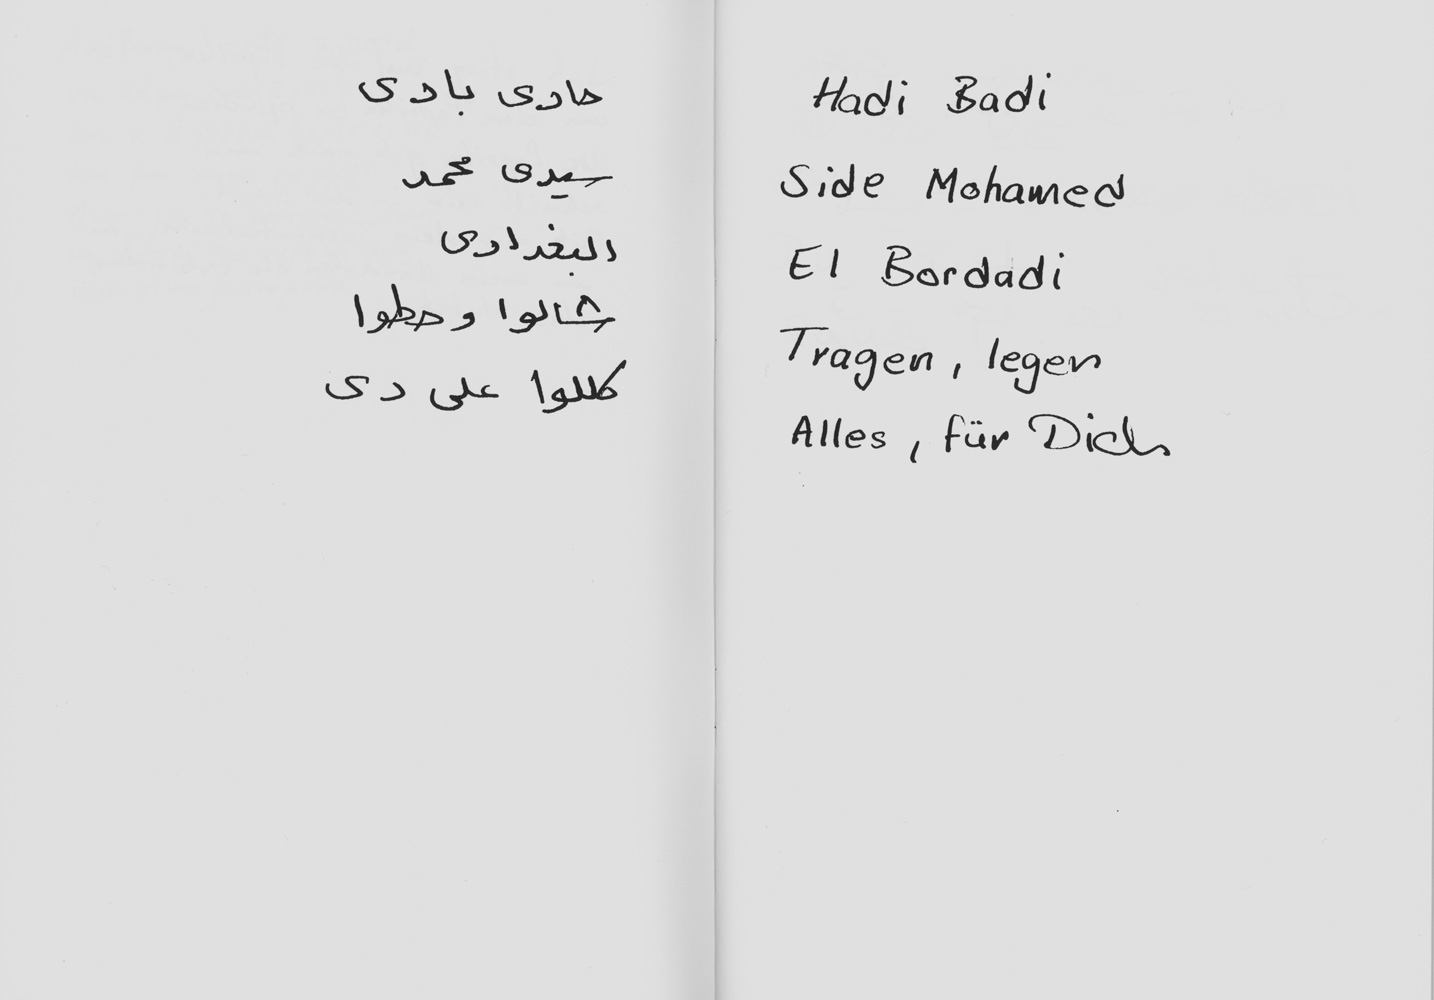 حادى بادى
سيدى محمد
البغدادى
شالوا وحطوا
كللوا على دى
Hadi Badi
Side Mohamed
El Bordadi
Tragen, legen
Alles, für Dich